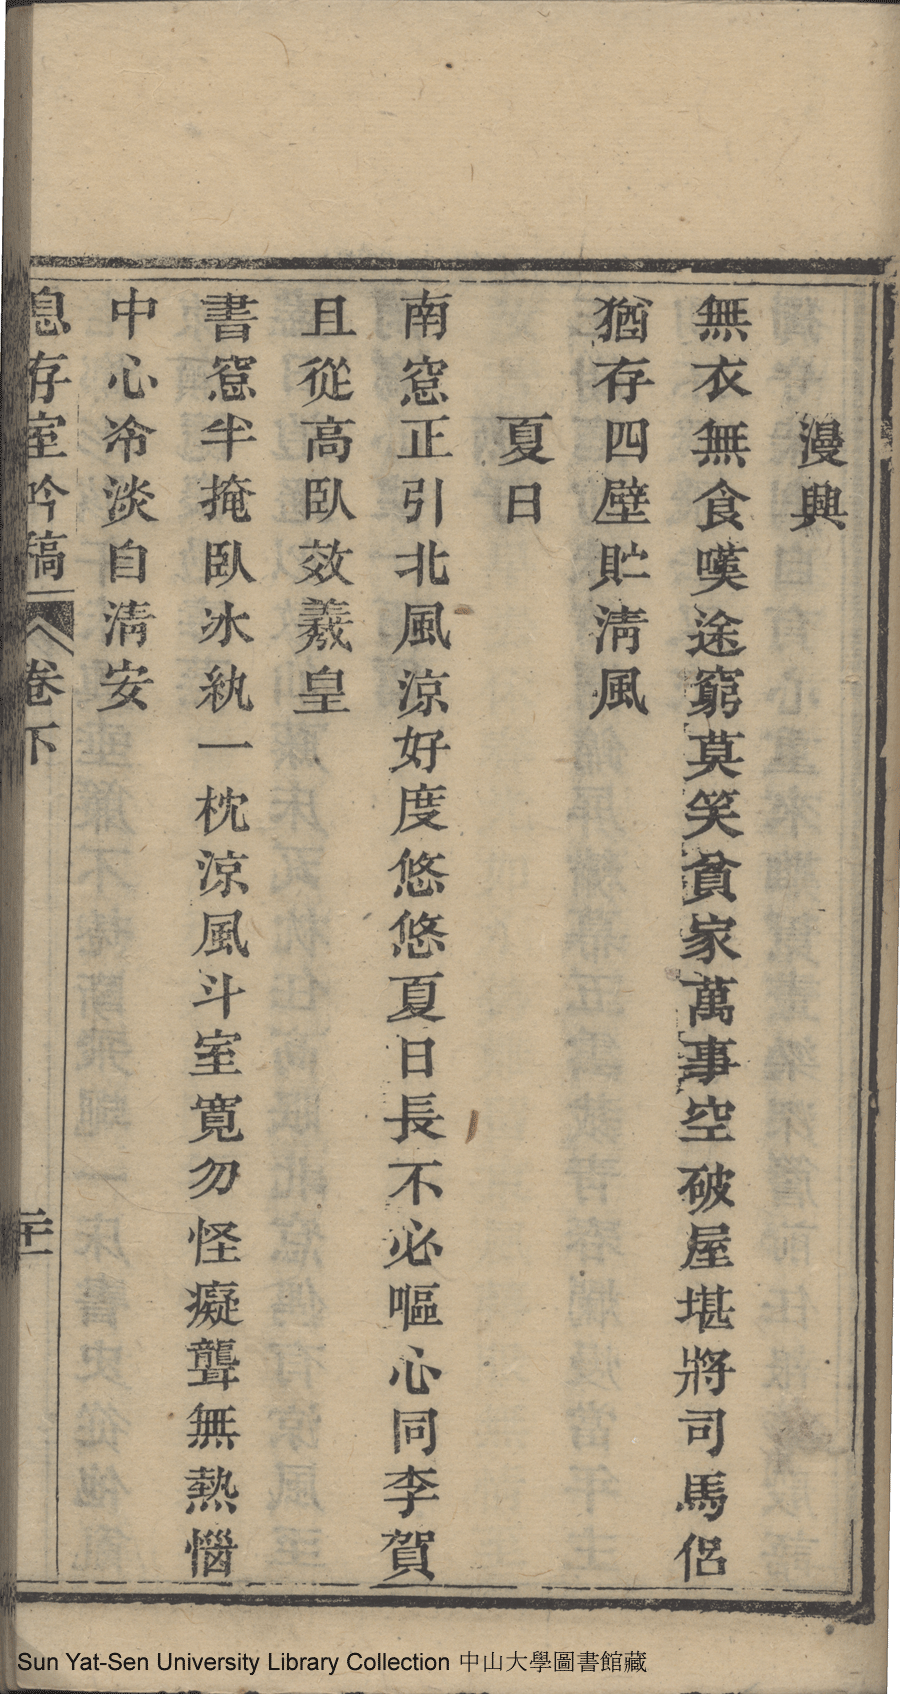 漫興
無衣無食嘆途窮莫笑貧家萬事空破屋堪將司馬侶
猶存四壁貯清風
夏日
南窓正引北風涼好度悠悠夏日長不必嘔心同李賀
且從高臥效羲皇
書窓半掩臥冰紈一枕涼風斗室寬勿怪癡聾無熱惱
中心冷淡自清安
息存室吟稿 卷下 二十一
Sun Yat-Sen University Library Collection 中山大學圖書館藏